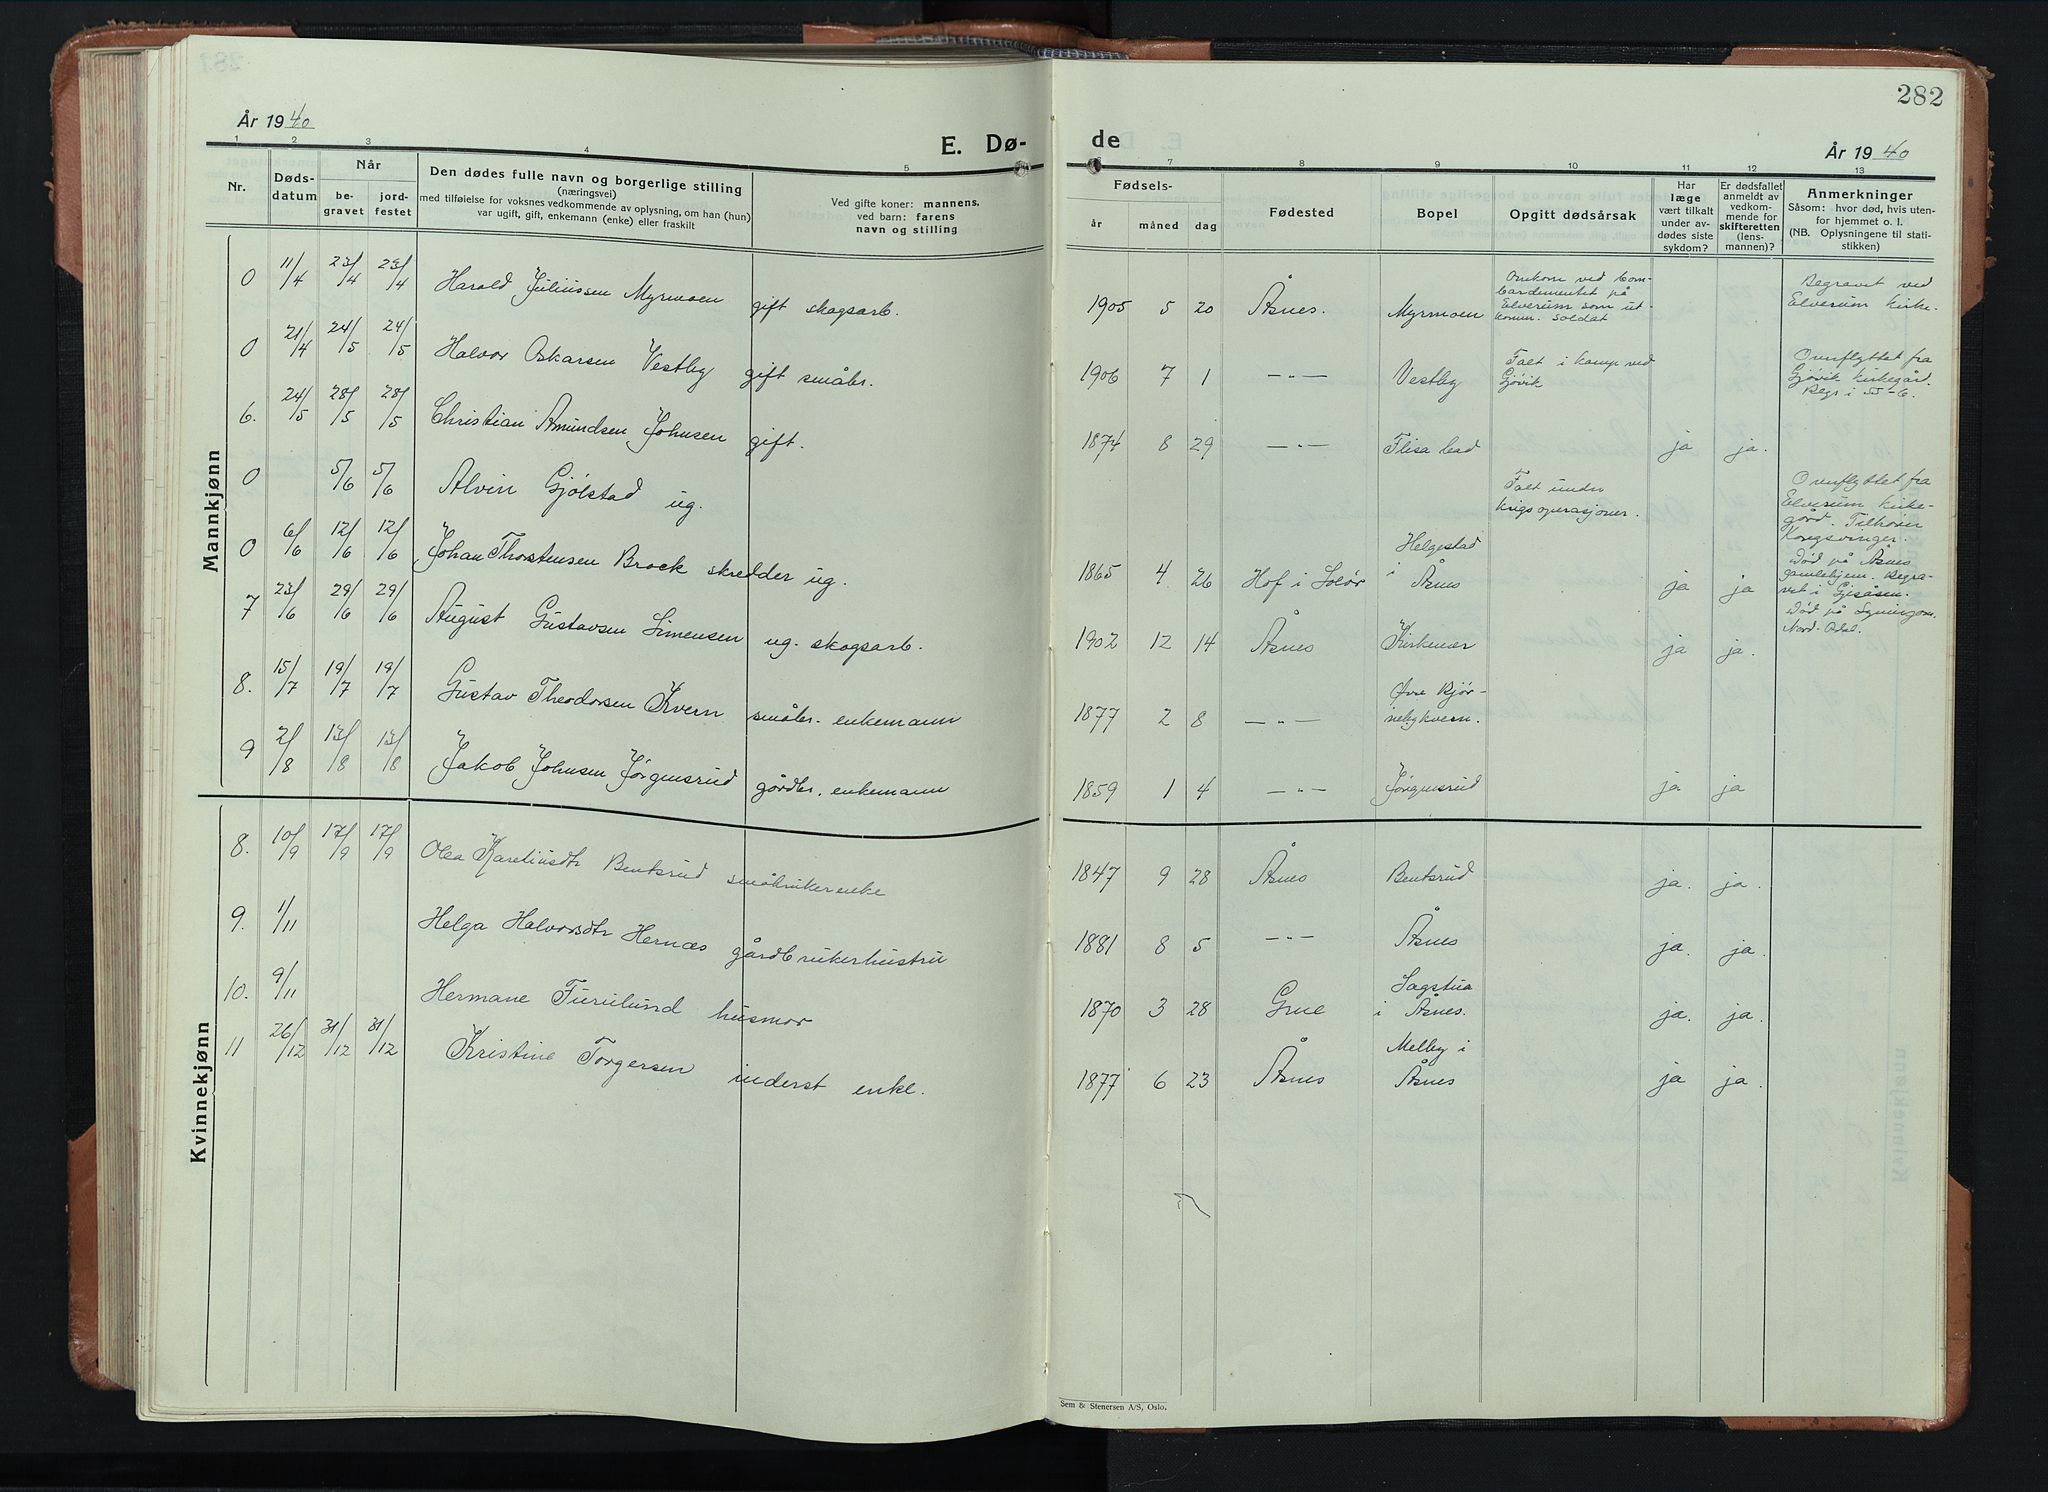 282
År 1940
E. Dø-
de
År 1940
1 2 3 4 5 6 7 8 9 10 11 12 13
Nr.
Døds-
datum
Når
be-
gravet
jord-
festet
Den dødes fulle navn og borgerlige stilling
(næringsvei)
med tilføielse for voksnes vedkommende av oplysning, om han (hun)
var ugift, gift, enkemann (enke) eller fraskilt
Ved gifte koner: mannens,
ved barn: farens
navn og stilling
Fødsels-
år måned dag
Fødested
Bopel
Opgitt dødsårsak
Har
læge
vært tilkalt
under av-
dødes siste
sykdom?
Er dødsfallet
anmeldt av
vedkom-
mende for
skifteretten
(lens-
mannen)?
Anmerkninger
Såsom: hvor død, hvis uten-
for hjemmet o. l.
(NB. Oplysningene til stati-
stikken)
Mannkjønn
0 11/4 23/4 23/4 Harald Juliussen Myrmoen gift skogsarb. 1905 5 20 Åsnes. Myrmoen
Omkom ved bom-
bardementet på
Elverum som ut-
komm. soldat
Begravet ved
Elverum kirke.
0 21/4 24/5 24/5 Halvor Oskarsen Vestby gift småbr. 1906 7 1 —"— Vestby
Falt i kamp ved
Gjøvik
Overflyttet fra
Gjøvik kirkegår.
Begr i 55-6.
6. 24/5 28/5 28/5 Christian Amundsen Johnsen gift. 1874 8 29 —"— Flisa ja ja.
0 5/6 5/6 Alvin Gjølstad ug.
Falt under
krigsoperasjoner.
Overflyttet fra
Elverum kirke-
gård. Tilhører
Kongsvinger.
0 6/6 12/6 12/6 Johan Thorstensen Brock skredder ug. 1865 4 26 Hof i Solør
Helgestad
i Åsnes ja ja
Død på Åsnes
gamlehjem. Begra-
vet i Gjesåsen.
7 23/6 29/6 29/6 August Gustavsen Simensen ug. skogsarb. 1902 12 14 Åsnes Kirkenær ja ja.
Død på
Nord-Odal.
8. 15/7 19/7 19/7 Gustav Theodorsen Kvern småbr. enkemann 1877 2 8 —"—
Øvre Bjør-
nebykvern.
9 2/8 13/8 13/8 Jakob Johnsen Jørgensrud gårdbr. enkemann 1859 1 4 —"— Jørgensrud ja ja
Kvinnekjønn
8. 10/9 17/9 17/9 Olea Kareliusdtr Bentsrud småbrukerenke 1847 9 28 Åsnes Bentsrud ja. ja.
9. 1/11 Helga Halvorsdtr Hernæs gårdbrukerhustru 1881 8 5 —"— Åsnes ja. ja.
10. 9/11 Hermane Furulund husmor 1870 3 28 Grue
Sagstua
i Åsnes. ja. ja.
11 26/12 31/12 31/12 Kristine Torgersen inderst enke. 1877 6 23 Åsnes
Melby i
Åsnes ja ja.
Sem & Stenersen A/S, Oslo.